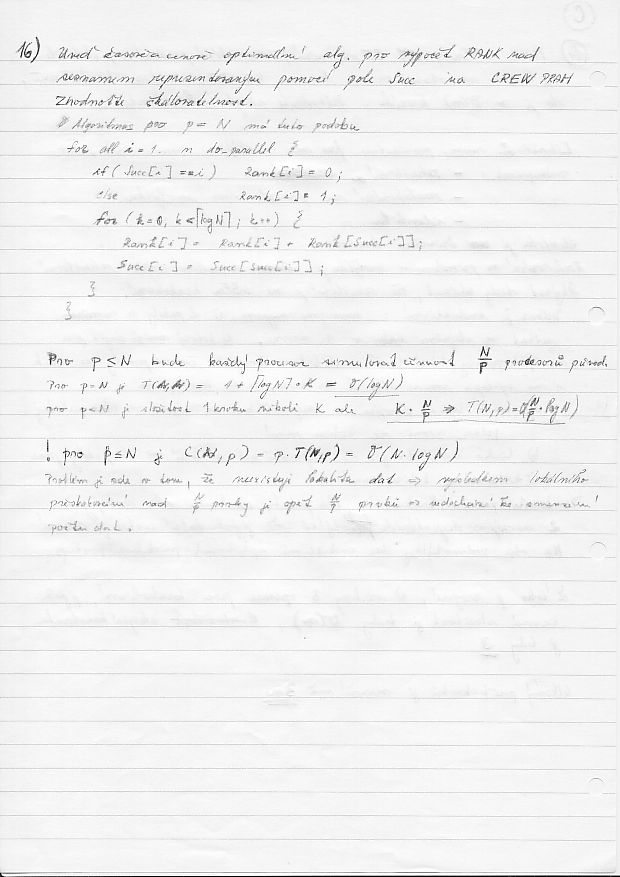 16) Uveď časově a cenově optimální alg. pro výpočet RANK nad
seznamem reprezentovaným pomocí pole Succ na CREW PRAM
Zhodnoťte škálovatelnost.
Algoritmus pro p = N má tuto podobu
for all i = 1.. n do_parallel {
if (Succ[i] == i) Rank[i] = 0;
else Rank[i] = 1;
for (k=0, k<⌈logN⌉; k++) {
Rank[i] = Rank[i] + Rank[Succ[i]];
Succ[i] = Succ[Succ[i]];
}
}
Pro p ≤ N bude každý procesor simulovat činnost N/p procesorů původ.
Pro p=N je T(N,N) = 1 + ⌈logN⌉ * K = O(logN)
pro p<N je složitost 1 kroku nikoli K ale K · N/p ⇒ T(N,p)=O(N/p · logN)
! pro p≤N je C(N,p) = p · T(N,p) = O(N·logN)
Problém je zde v tom, že neexistuje lokalita dat ⇒ výsledkem lokálního
předzpracování nad N/p prvky je opět N/p prvků ⇒ nedochází ke zmenšení
počtu dat.